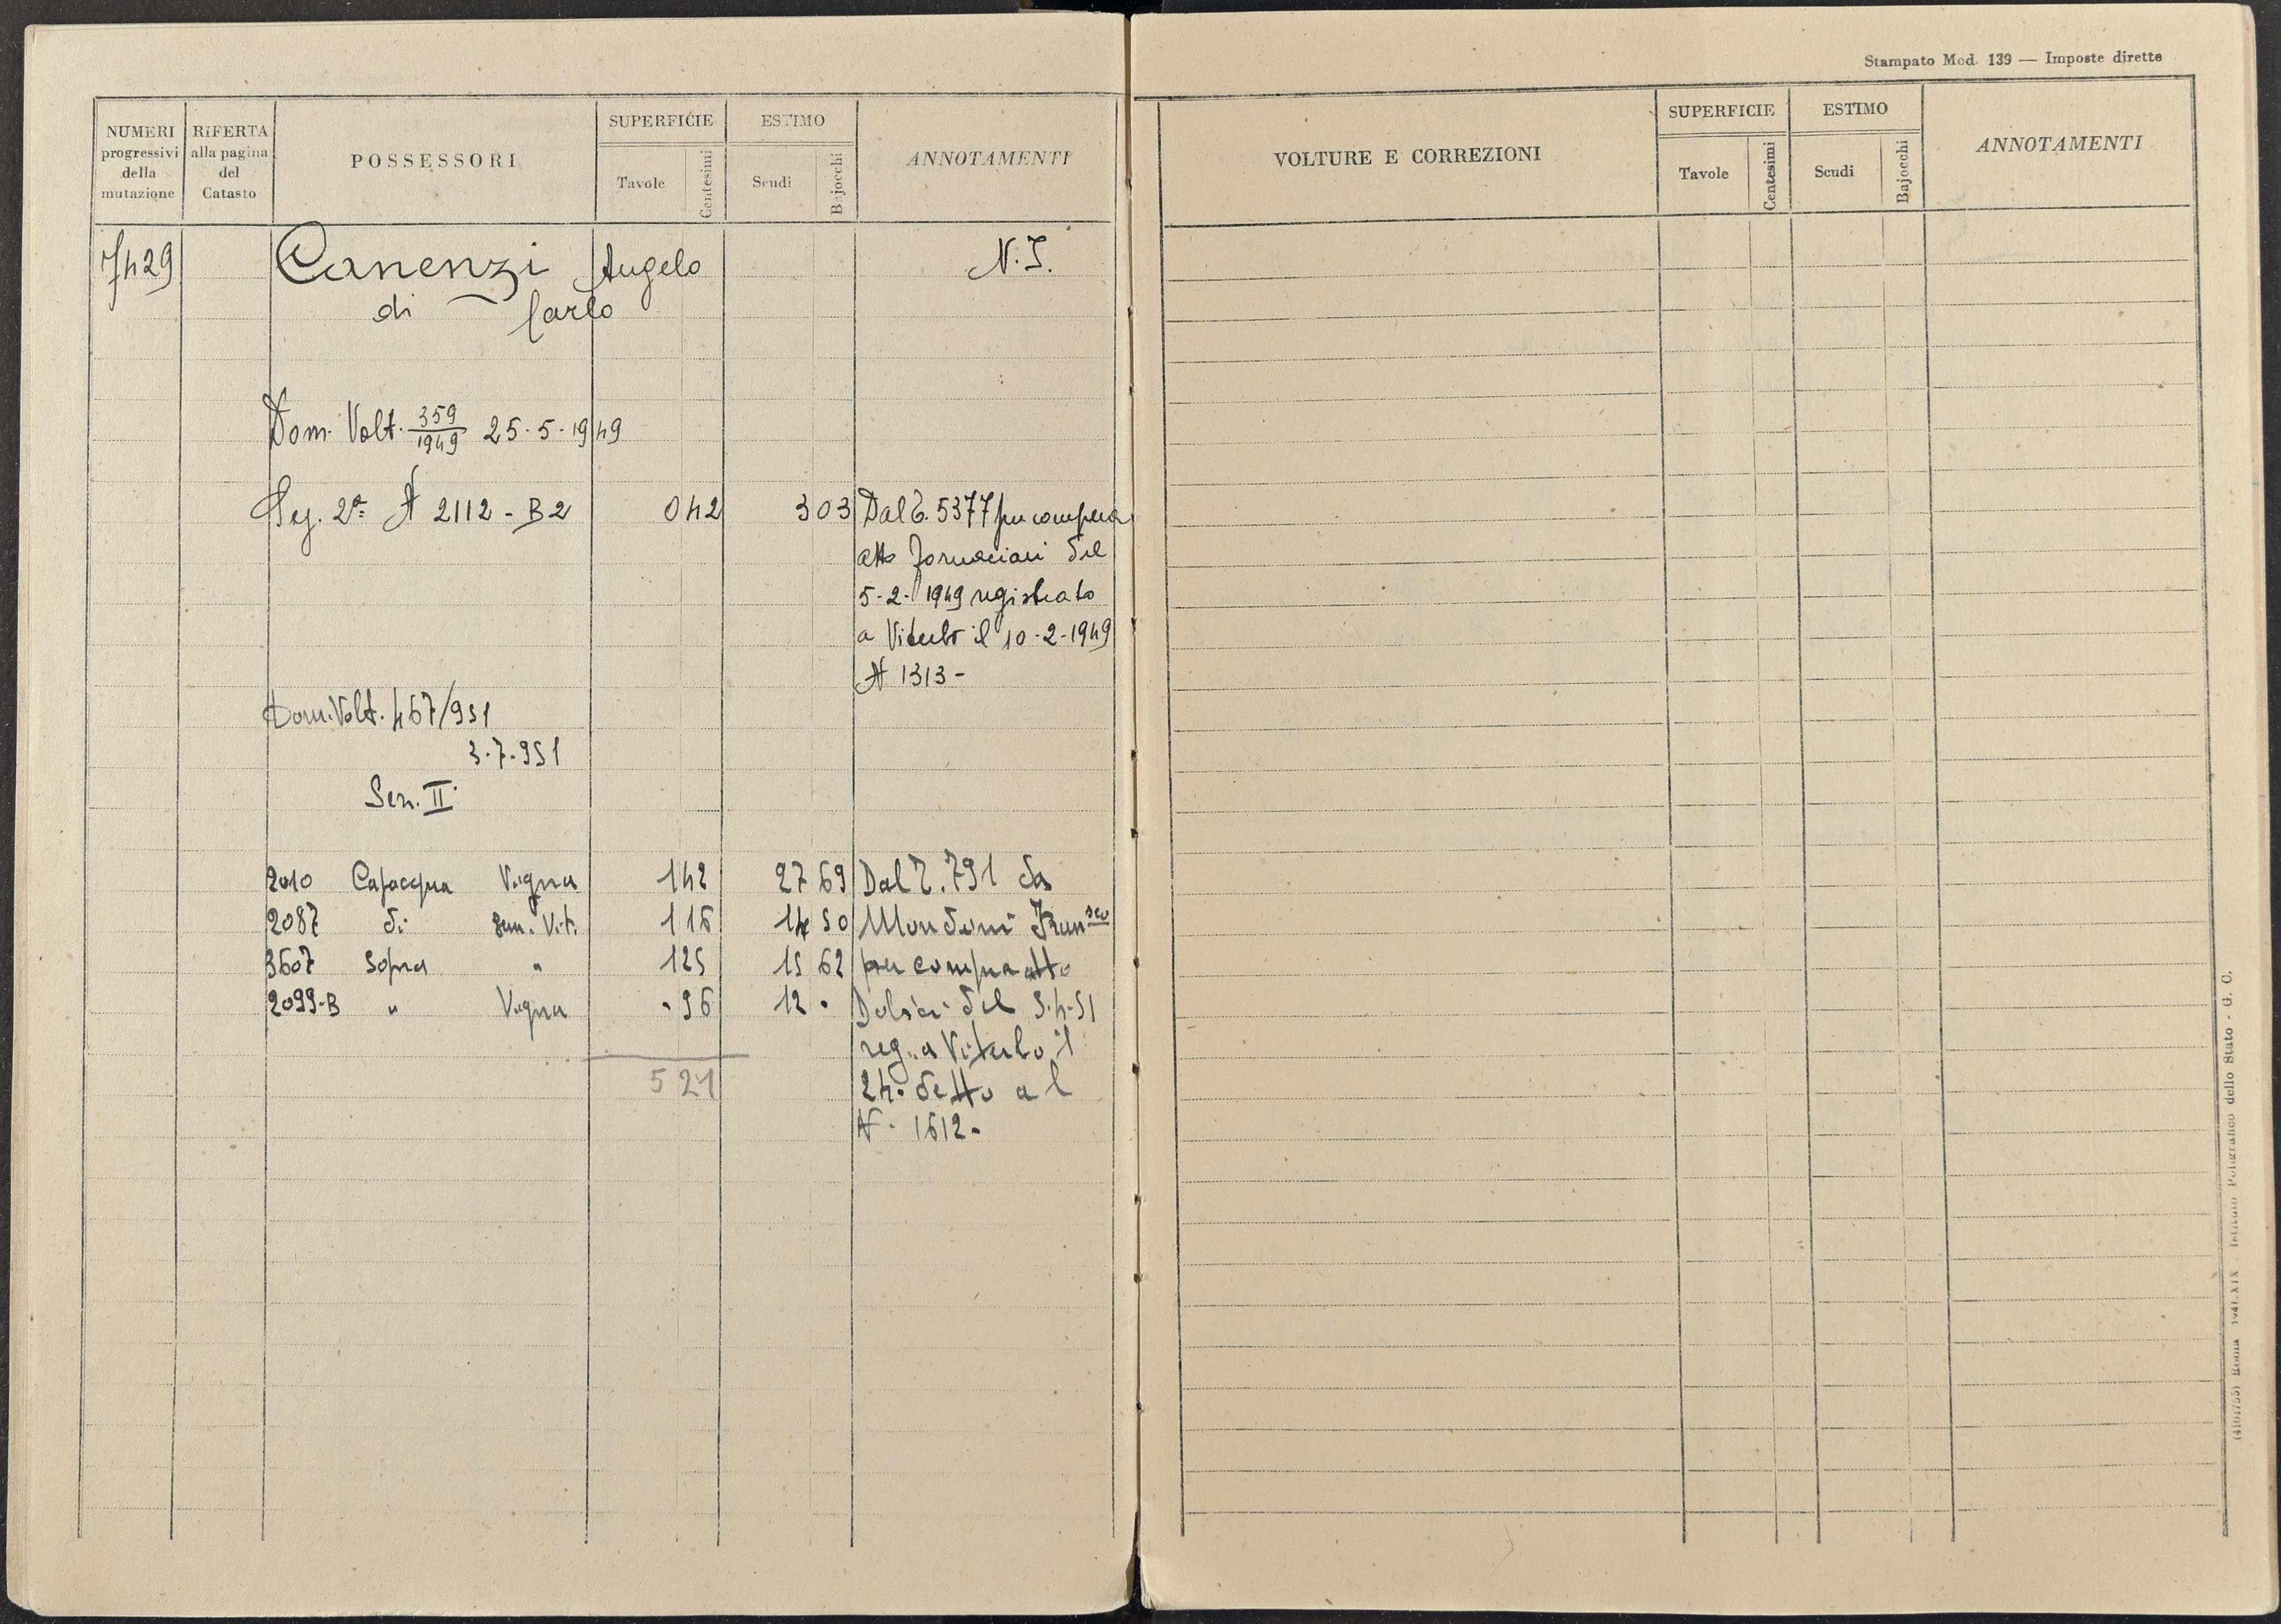 NUMERI progressivi della mutazione
RIFERTA alla pagina del Catasto
POSSESSORI
SUPERFICIE
Tavole
Centesimi
ESTIMO
Scudi
Bajocchi
ANNOTAMENTI
7429 Canenzi Angelo N.I.
di Carlo
Dom. Volt. 359/1949 25-5-1949
Sez. 2ª N 2112-B2 0 42 3 03 Dal T. 5377 per compera
atto Fornaciari del
5-2-1949 registrato
a Viterbo il 10-2-1949
N 1313-
Dom. Volt. 467/951
3.7.951
Sez. II
2010 Capacqua Vigna 1 42 27 69 Dal T. 791 da
2087 di Sem. Vit. 1 16 14 50 Mondoni Fran.sco
3607 Sopra " 1 25 15 62 per compra atto
2099-B " Vigna - 96 12 - Dolsci del 5-4-51
reg. a Viterbo il
24. detto al
N. 1612-
5 21
Stampato Mod. 139 — Imposte dirette
VOLTURE E CORREZIONI
SUPERFICIE
Tavole
Centesimi
ESTIMO
Scudi
Bajocchi
ANNOTAMENTI
(4101755) Roma 1941-XIX - Istituto Poligrafico dello Stato - G. C.